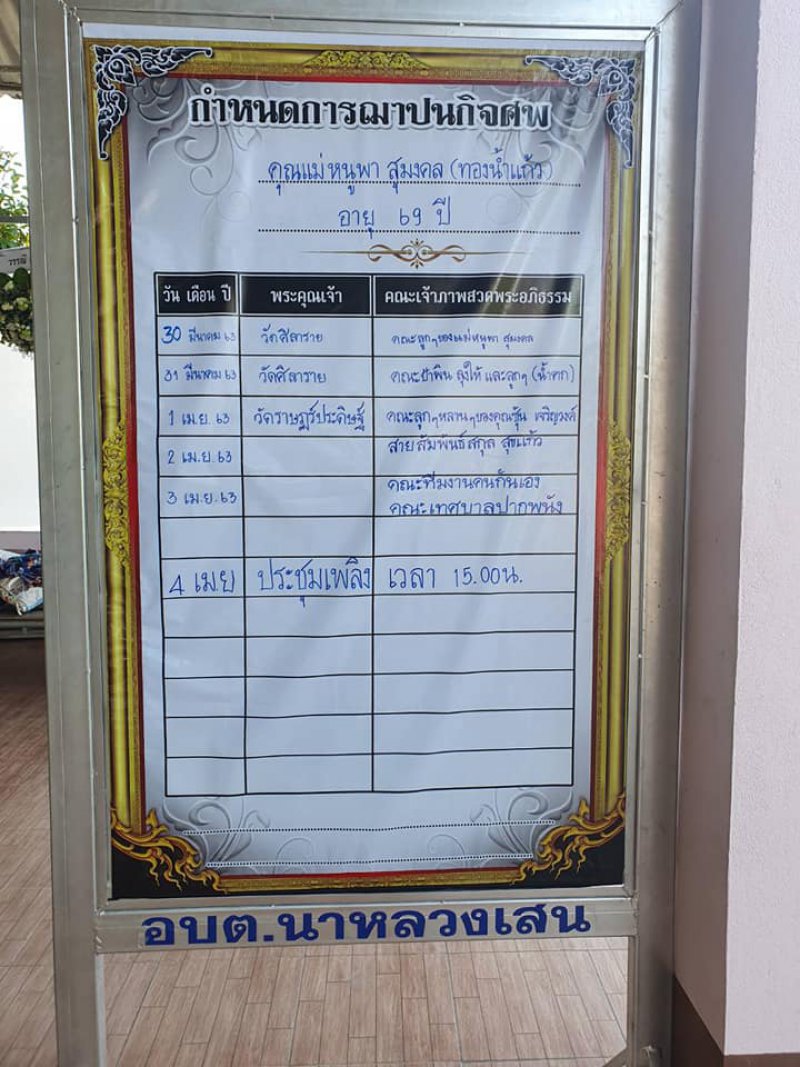 กำหนดการฌาปนกิจศพ
คุณแม่หนูพา สุมงคล (ทองน้ำแก้ว)
อายุ 69 ปี
วัน เดือน ปี พระคุณเจ้า คณะเจ้าภาพสวดพระอภิธรรม
30 มีนาคม 63 วัดศิลาราย คณะลูกๆของแม่หนูพา สุมงคล
31 มีนาคม 63 วัดศิลาราย คณะป้าพิน ลุงให้ และลูกๆ (น้ำตก)
1 เม.ย. 63 วัดราษฎร์ประดิษฐ์ คณะลูกๆหลานๆของคุณรุ่น เจริญวงศ์
2 เม.ย. 63 สายสัมพันธ์สกุล สุขแก้ว
3 เม.ย. 63 คณะทีมงานคนกันเอง
คณะเทศบาลปากพนัง
4 เมย ประชุมเพลิง เวลา 15.00น.
อบต.นาหลวงเสน
วรรณ์